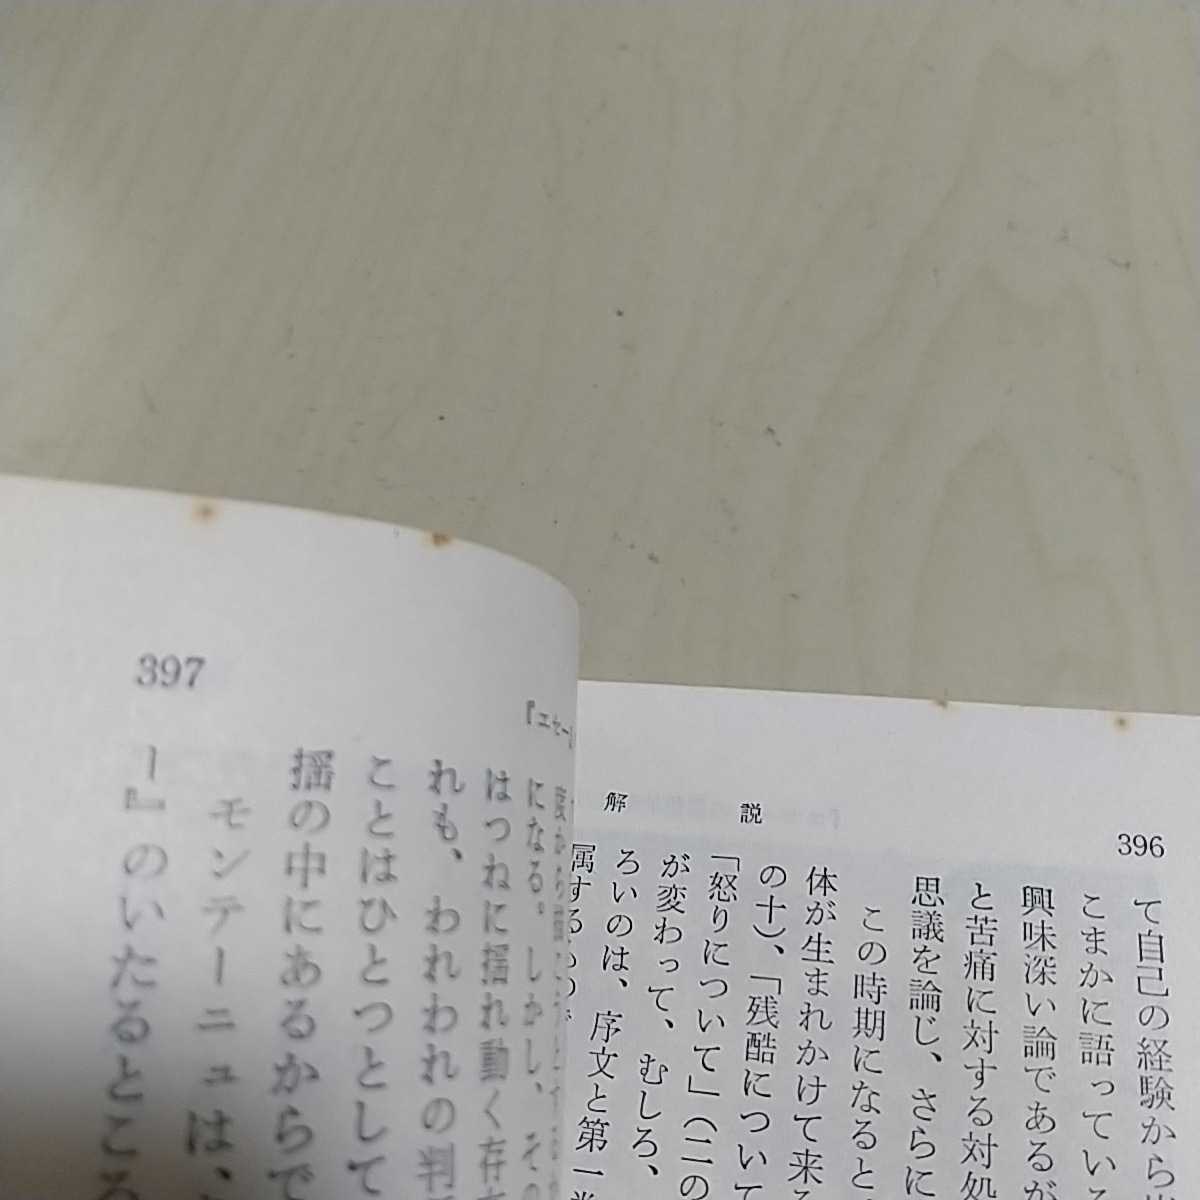 396
解説
て自己の経験から
こまかに語っている
興味深い論であるが
と苦痛に対する対処
思議を論じ、さらに
この時期になると
体が生まれかけて来る
の十)、「残酷について
「怒りについて」(二の
が変わって、むしろ、
ろいのは、序文と第一
属するもので
397
『エセー』
になる。しかし、その
はつねに揺れ動く存在
れも、われわれの判
ことはひとつとして
揺の中にあるからで
モンテーニュは、
ー』のいたるところ